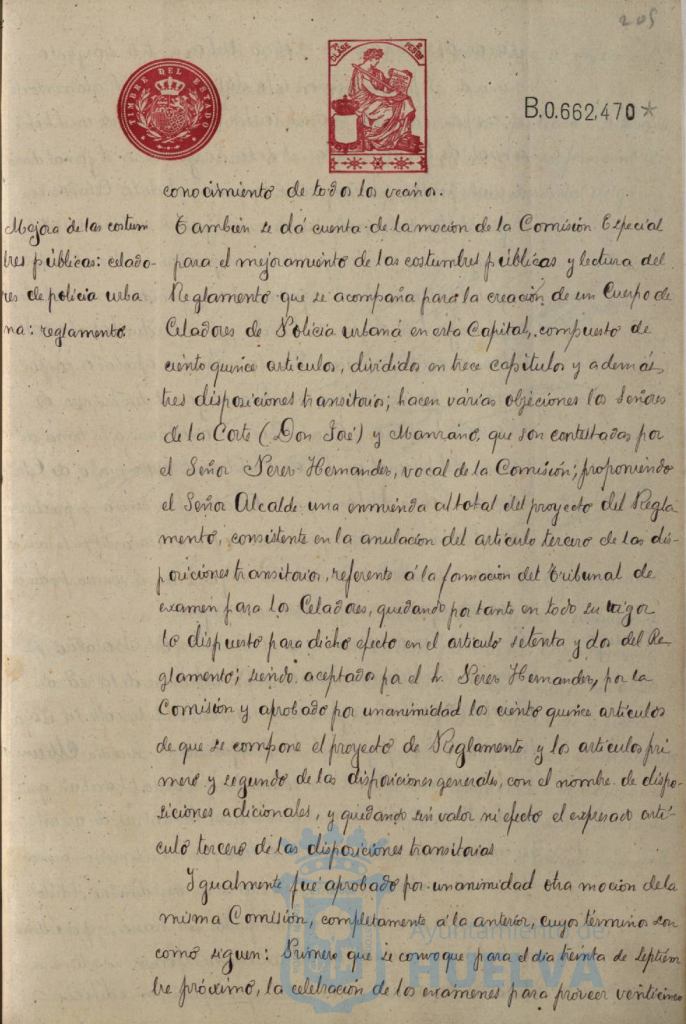 205
TIMBRE DEL ESTADO
7ª CLASE
PESETAS
B.0.662,470 *
conocimiento de todos los vecinos.
Mejora de las costum
bres públicas: celado-
res de policía urba
na: reglamento
También se dá cuenta de la moción de la Comisión Especial
para el mejoramiento de las costumbres públicas y lectura del
Reglamento que se acompaña para la creación de un Cuerpo de
Celadores de Policía urbana en esta Capital, compuesto de
ciento quince artículos, divididos en trece capítulos y además
tres disposiciones transitorias; hacen várias objeciones los Señores
de la Corte (Don José) y Manzano, que son contestadas por
el Señor Perez Hernandez, vocal de la Comisión; proponiendo
el Señor Alcalde una enmienda al total del proyecto del Regla
mento, consistente en la anulación del artículo tercero de las dis-
posiciones transitorias, referente á la formación del tribunal de
examen para los Celadores, quedando por tanto en todo su vigor
lo dispuesto para dicho efecto en el artículo setenta y dos del Re-
glamento; siendo aceptado por el Sr. Perez Hernandez, por la
Comisión y aprobado por unanimidad los ciento quince artículos
de que se compone el proyecto de Reglamento y los artículos pri
mero y segundo de las disposiciones generales, con el nombre de dispo-
siciones adicionales, y quedando sin valor ni efecto el expresado artí-
culo tercero de las disposiciones transitorias
Igualmente fué aprobado por unanimidad otra moción de la
misma Comisión, completamente á la anterior, cuyos términos son
como siguen: Primero que se convoque para el día treinta de Septiem
bre próximo, la celebración de los exámenes para proveer veinticinco
Ayuntamiento de
HUELVA